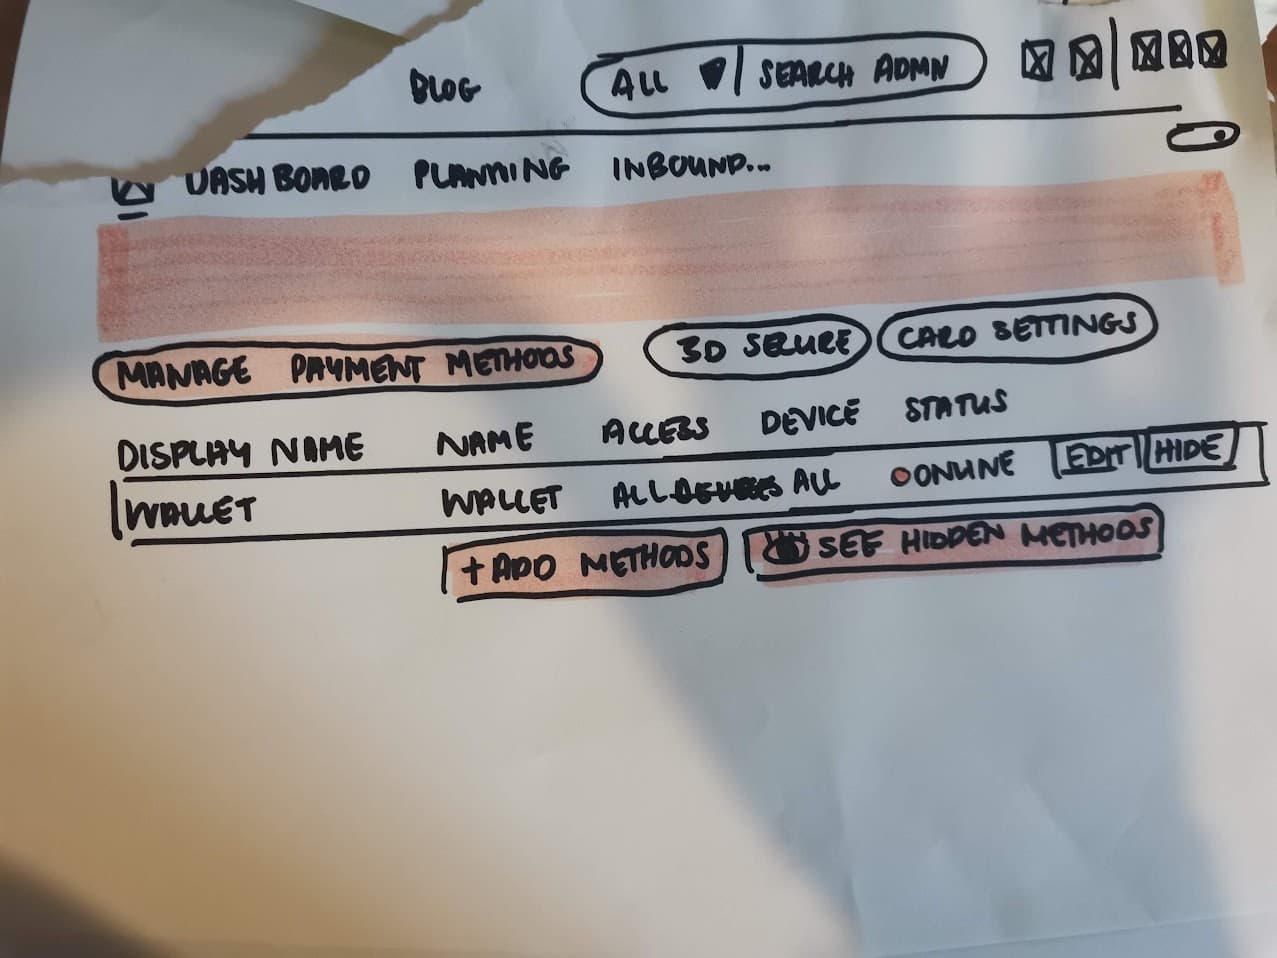 BLOG ALL | SEARCH ADMN
DASHBOARD PLANNING INBOUND...
MANAGE PAYMENT METHODS 3D SECURE CARD SETTINGS
DISPLAY NAME NAME ACCESS DEVICE STATUS
WALLET WALLET ALL ALL ONLINE EDIT HIDE
+ ADD METHODS SEE HIDDEN METHODS